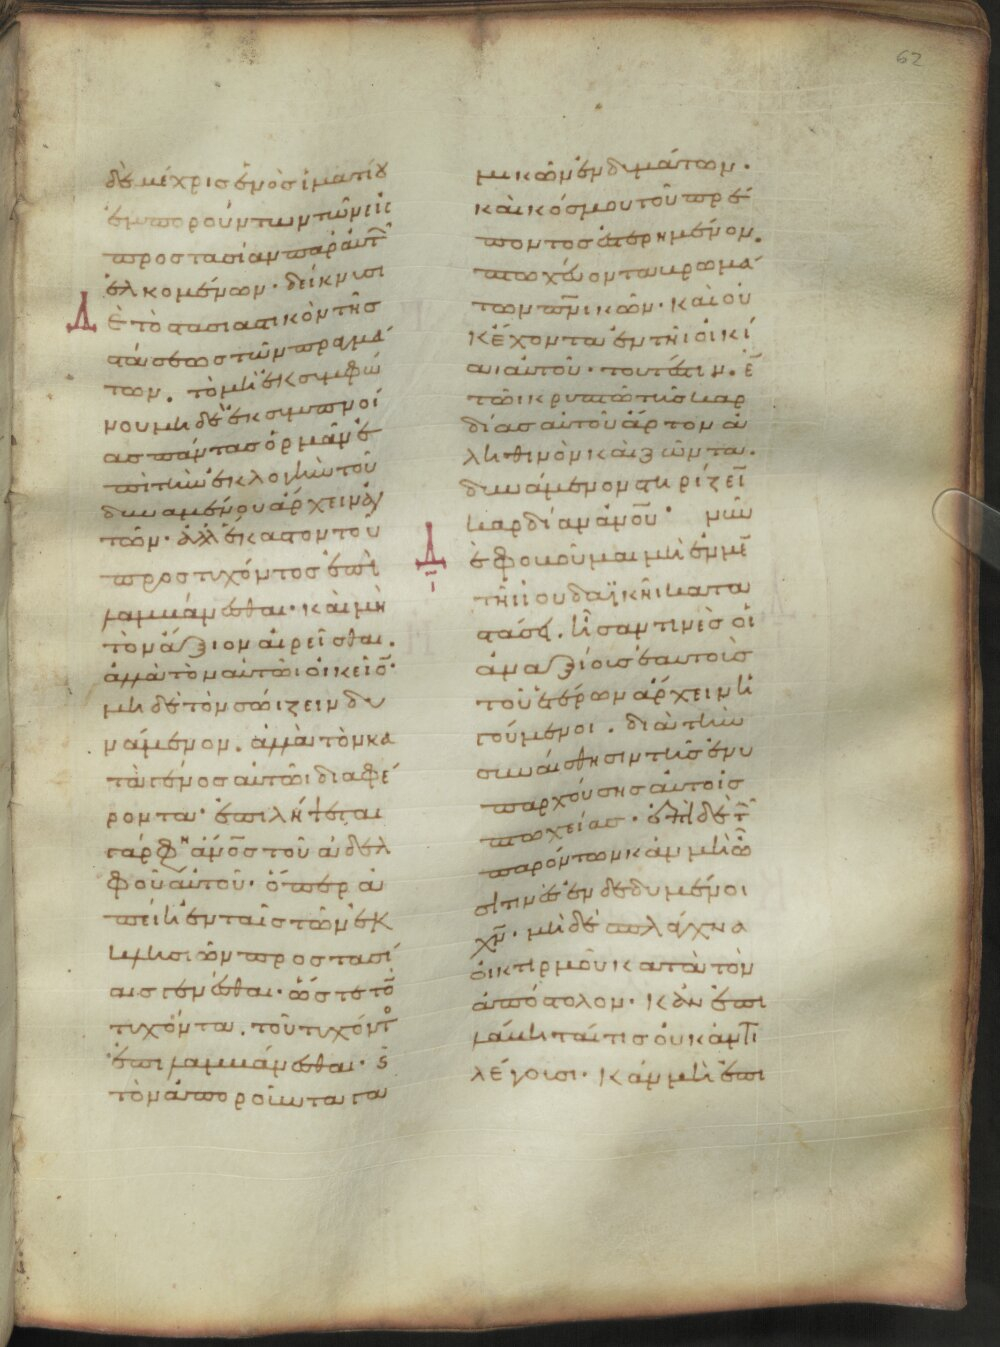 62
δὲ μέχρις ἑνὸς ἱματίου
ἐμπορούντων τῶν εἰς
προστασίαν παρ' αὐτ̑
ἑλκομένων· δείκνυσι
Δ ὲ τὸ στασιαστικὸν τῆς
στάσεως τῶν πραγμά
των. τὸ μὴ ἐκ συμφώ
νου μὴ δὲ ἐκ συμπνοί
ας πάντας ὁρμᾶν ἐ
πὶ τὴν ἐκλογὴν τοῦ
δυναμένου ἄρχειν αὐ
τῶν· ἀλλ' ἕκαστον τοῦ
προστυχόντος ἐπι
λαμβάνεσθαι· καὶ μὴ
τὸν ἄξιον αἱρεῖσθαι.
ἀλλὰ τὸν αὐτῶι οἰκεῖο̅·
μὴ δὲ τὸν σώιζειν δυ
νάμενον. ἀλλὰ τὸν κα
τὰ γένος αὐτῶι διαφέ
ροντα· ἐπιλήψεται
γάρ φη ἄνο̅ς τοῦ ἀδελ
φοῦ αὐτοῦ· ὅπερ ἀ
πείη ἐν ταῖς τῶν ἐκ
κλησιῶν προστασί
αις γενέσθαι· ὥστε τὸ̅
τυχόντα. τοῦ τυχόντο
ἐπιλαμβάνεσθαι· ϛ̀
τὸν ἀποροῦντα τα
μικῶν ἐνδυμάτων·
καὶ κόσμου τοῦ πρέ
ποντος ἐστερημένον.
πτωχεύοντα βρωμά
των πν̅ικῶν· καὶ οὐ
κ ἔχοντα ἐν τῆι οἰκί
αι αὐτοῦ· τουτέστιν. ἐ̅
τῶι κρυπτῶ τῆς καρ
δίας αὐτοῦ ἄρτον ἀ
ληθινὸν καὶ ζῶντα.
δυνάμενον στηρίζει̅
καρδίαν ἀνο̅υ· μὴν
Δ ὲ φοβοῦμαι μὴ ἐν με̅
τῆι ἰουδαϊκῆι κατα
στάσει. ἦσάν τινες οἱ
ἀναξίους ἑαυτοὺς
τοῦ ἑτέρων ἄρχειν ἡ
γούμενοι. διὰ τὴν
συναίσθησιν τῆς ἐνυ
παρχούσης αὐτοῖς
πτωχείας· ἐπὶ δὲ τ̅
παρόντων κἂν μὴ ὦ
σί τινες ἐνδεδυμένοι
χν̅· μὴ δὲ σπλάγχνα
οἰκτιρμοῦ κατὰ τὸν
ἀπόστολον· κἂν ἐπι
λάβηταί τις οὐκ ἀντι
λέγουσι· κἂν μὴ ἐπι